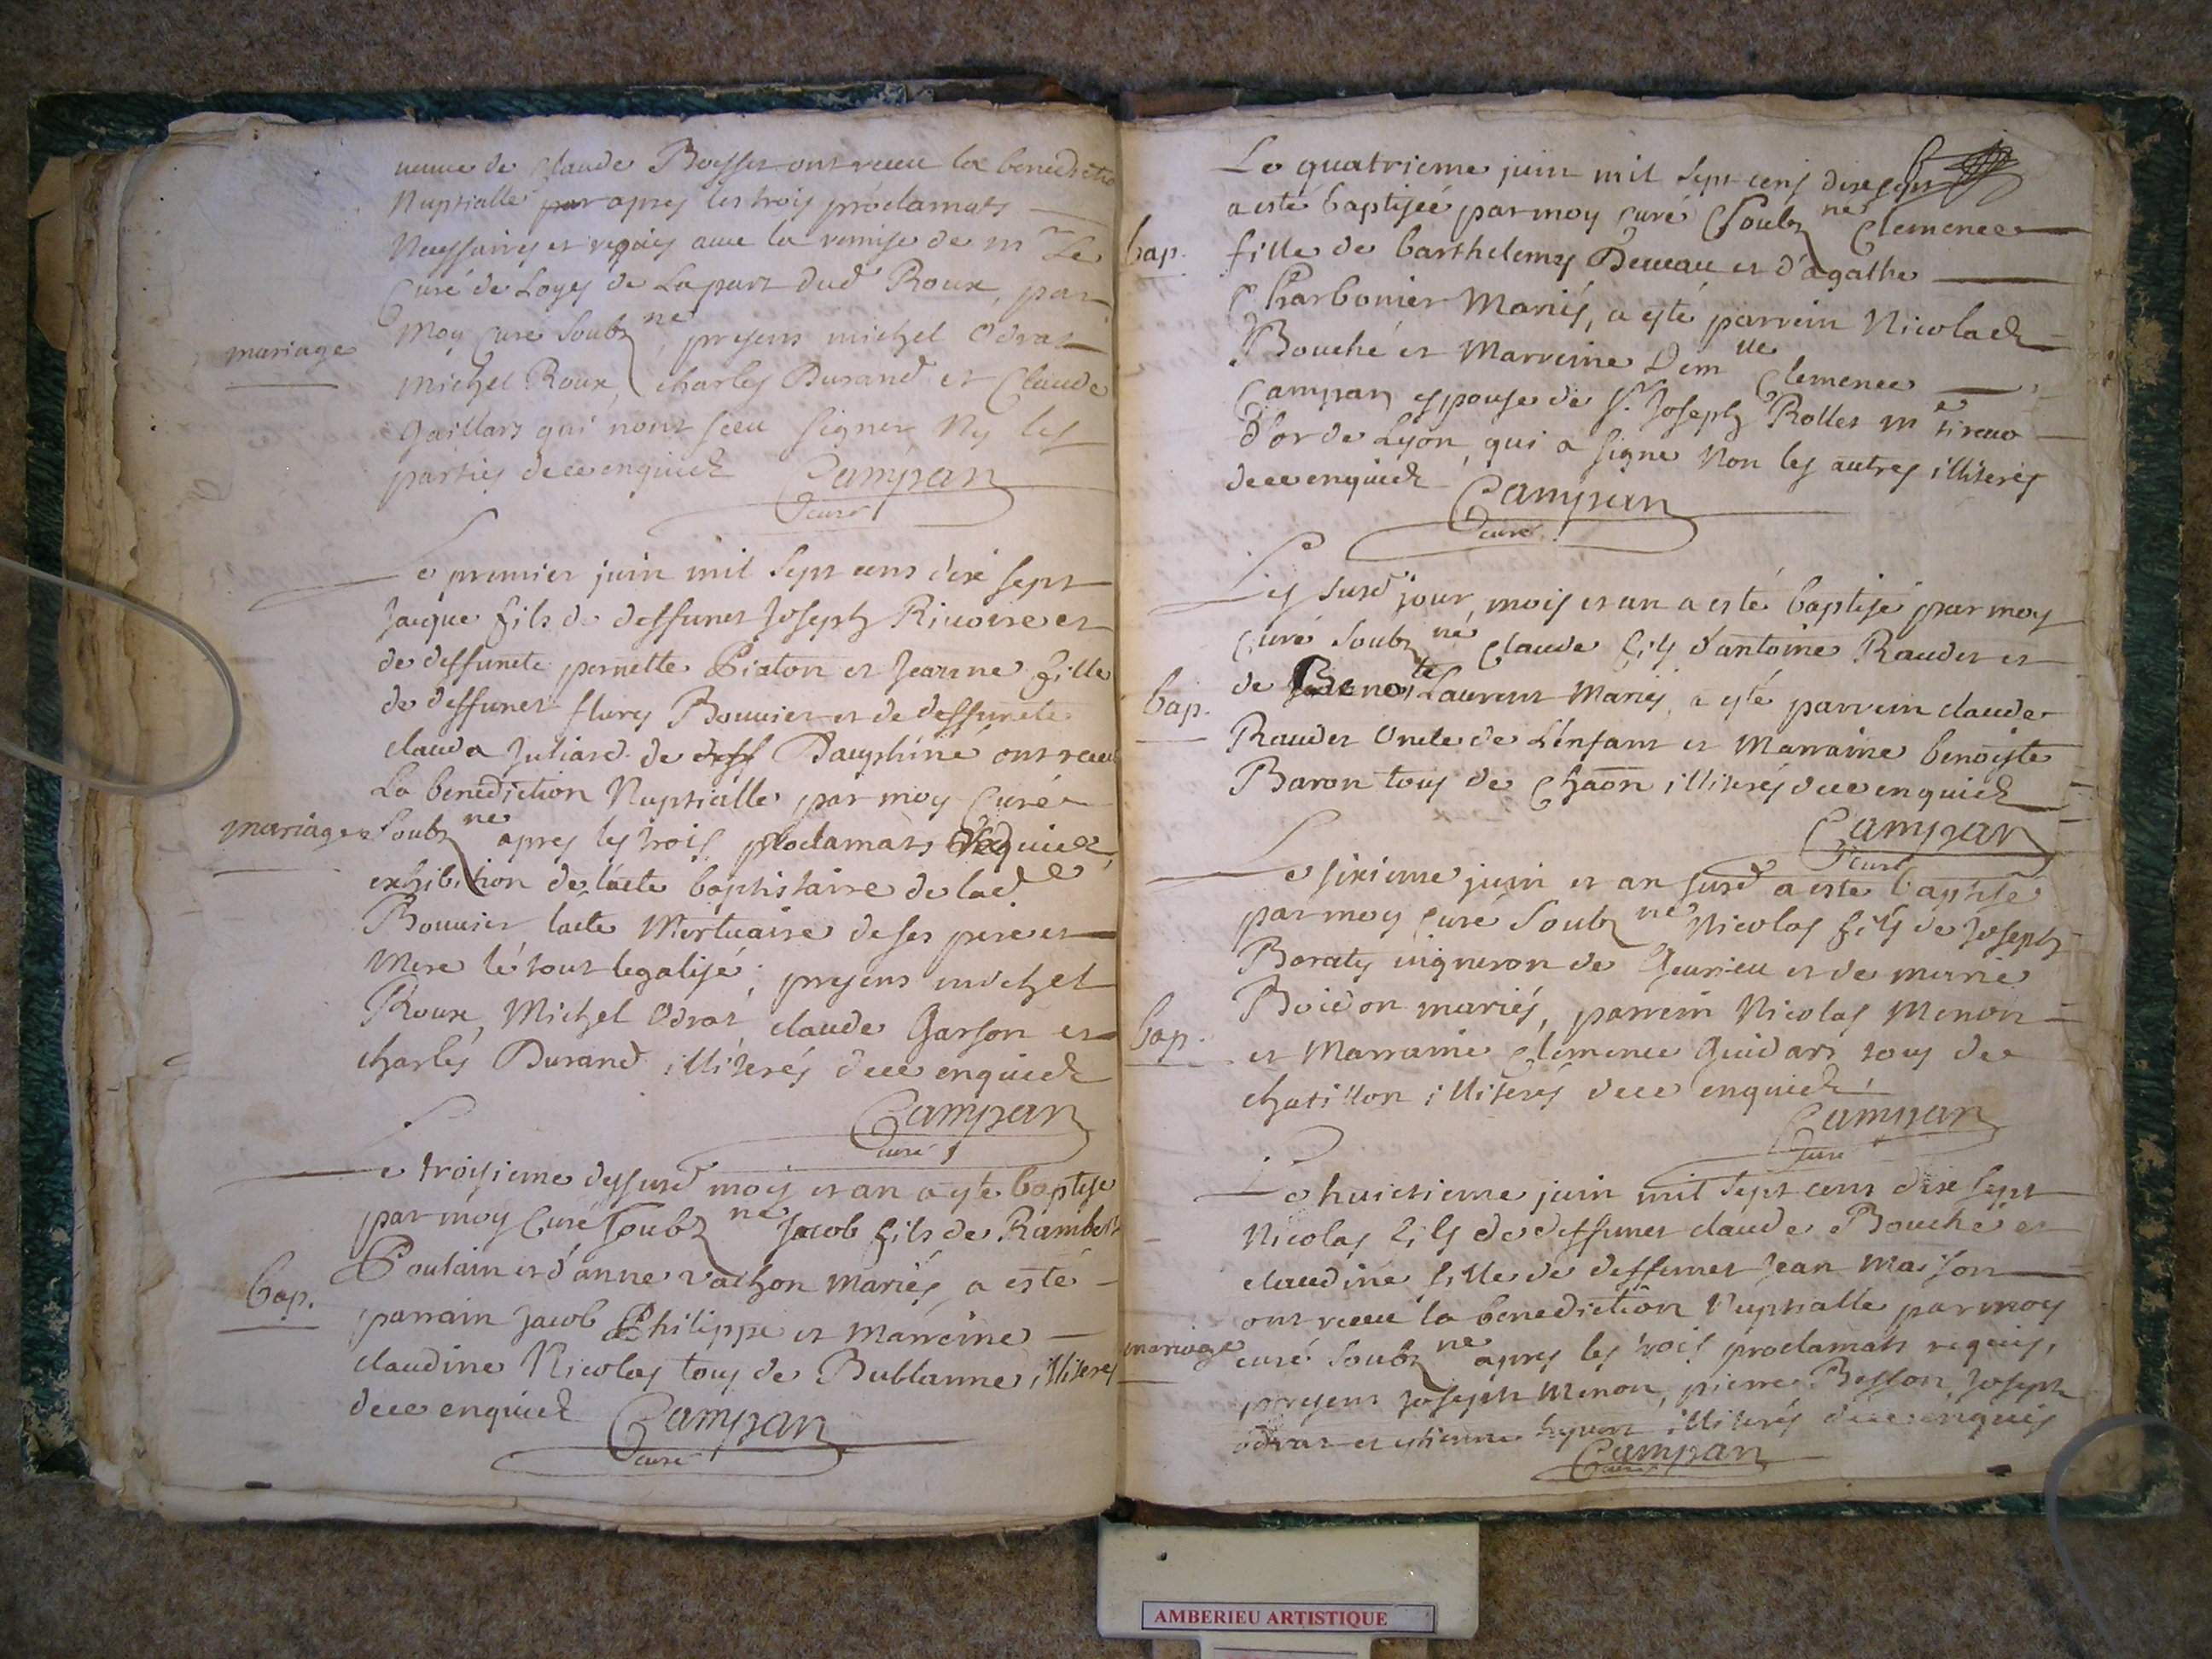 veuve de Claude Boysset ont receu la benedictio
Nuptialle par apres les trois proclamats
Necessaires et requis avec la remise de mr Le
Curé de Loyes de La part dud Roux, par
mariage
Moy Curé Soubzne, presens michel Odrat
Michel Roux, charles Durand et Claude
Gaillart qui n'ont sceu signer Ny les
parties de ce enquick Campan
curé
Le premier juin mil Sept cens dix sept
Jacque fils de deffunct Joseph Rivoire et
de deffuncte pernette Piaton et Jeanne fille
de deffunct flury Bouvier et de deffuncte
clauda Juliard de deff Dauphiné ont receu
La benediction Nuptialle par moy Curé
mariage
Soubzne apres les trois proclamats
exhibition de lacte baptistaire de lade
Bouvier lacte Mortuaire de ses pere et
Mere le tout legalisé; presens michel
Roux, Michel Odrat claude Garson et
charles Durand illiterés de ce enquick
Campan
curé
Le troisieme dessusd mois et an a esté baptisé
par moy Curé Soubzné Jacob fils de Rambert
bap.
Poulain et d'anne vachon mariés, a esté
parrain Jacob Philippe et Marreine
claudine Nicolas tous de Bublanne illiterés
de ce enquick Campan
curé
Le quatrieme juin mil Sept cens dixsept
a esté baptisée par moy Curé Soubzné Clemence
bap.
fille de barthelemy Deveau et d'agathe
Charbonier Mariés, a esté parrein Nicolack
Bouché et Marreine Demlle Clemence
Campan espouse de Sr. Joseph Rollet me tireur
d'or de Lyon, qui a signé Non les autres illiterés
de ce enquick Campan
curé
Les susd jour, mois et an a esté baptisé par moy
Curé Soubzné Claude fils d'antoine Raudet et
bap.
de Benoite Laurent Mariés, a esté parrein claude
Raudet Oncle de L'enfant et Marraine benoiste
Baron tous de Chaon illiterés de ce enquick
Campan
curé
Le sixieme juin et an susd a esté baptisé
par moy curé Soubzné Nicolas fils de Joseph
Boraty vigneron de Gevrieu et de marie
Boidon mariés, parrein Nicolas Menon
bap.
et Marraine Clemence Guidart tous de
chatillon illiterés de ce enquick
Campan
curé
Le huictieme juin mil Sept cens dix sept
Nicolas fils de deffunct claude Bouché et
claudine fille de deffunct Jean Maison
ont receu la benediction Nuptialle par moy
mariage
curé Soubzné apres les trois proclamats requis,
presens Joseph Menon, pierre Besson, Joseph
odrat et estienne illiterés de ce enquis
Campan
curé
AMBERIEU ARTISTIQUE